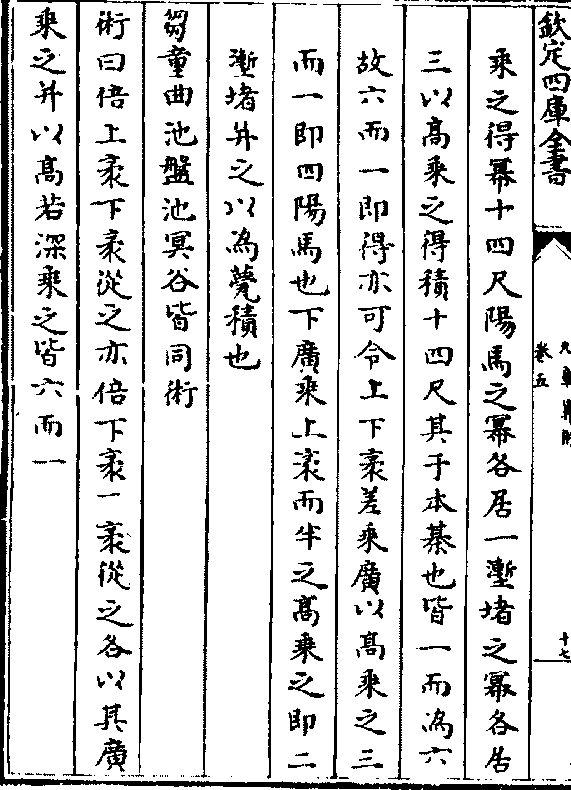 欽定四庫全書
九章算術
卷五
十七
乘之得冪十四尺陽馬之冪各居一塹堵之冪各居
三以高乘之得積十四尺其于本棊也皆一而為六
故六而一即得亦可令上下袤差乘廣以高乘之三
而一即四陽馬也下廣乘上袤而半之高乘之即二
塹堵并之以為甍積也
芻童曲池盤池冥谷皆同術
術曰倍上袤下袤從之亦倍下袤一袤從之各以其廣
乘之并以高若深乘之皆六而一